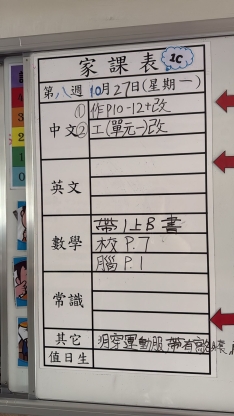 家課表 1C
第八週 10月27日(星期一)
中文 ①作P10-12+改
②工(單元一)改
英文
數學 帶1上B書
校P.7
腦P.1
常識
其它 明穿運動服 帶有
值日生